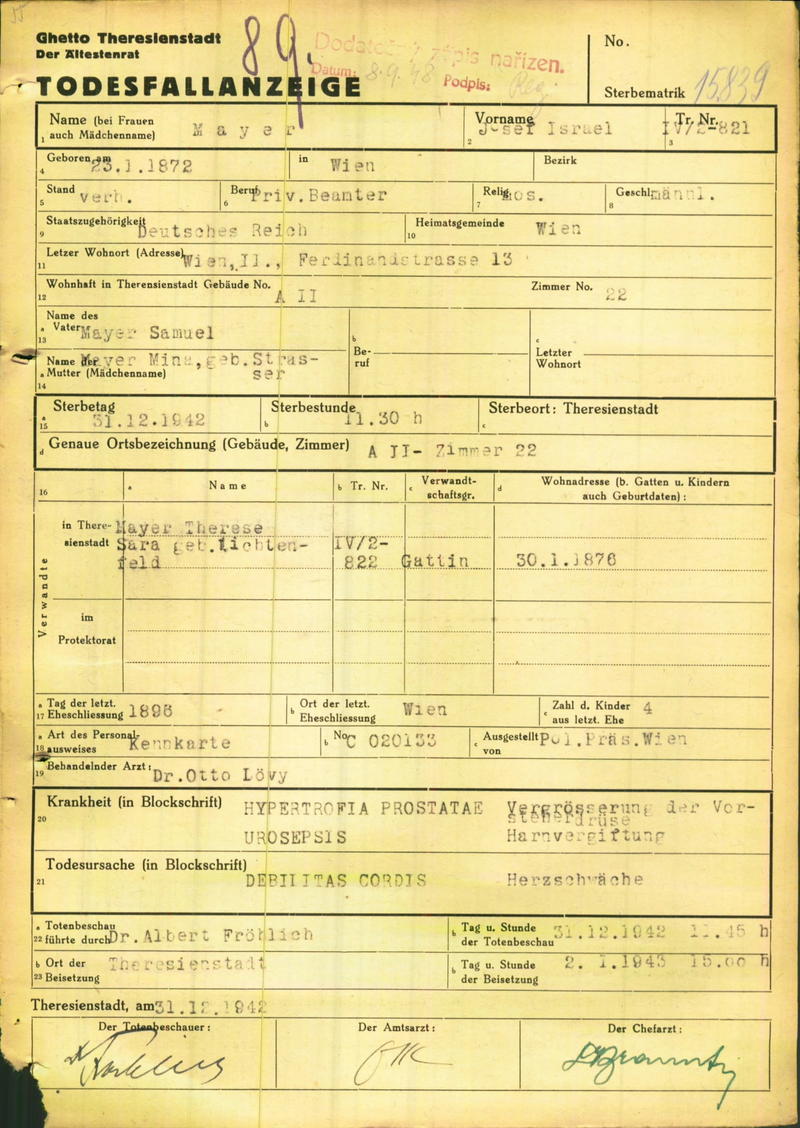 55
Ghetto Theresienstadt
Der Ältestenrat
89.
Dodatečný zápis nařízen.
Datum: 8.9.48 Podpis:
No.
TODESFALLANZEIGE
Sterbematrik 15.839
Name (bei Frauen
1 auch Mädchenname) Mayer
Vorname Josef Israel
2
Tr. Nr. IV/2-821
3
Geboren am 23.1.1872 in Wien Bezirk
4
Stand verh. Beruf Priv.Beamter Relig. mos. Geschl. männl.
5 6 7 8
Staatszugehörigkeit Deutsches Reich Heimatsgemeinde Wien
9 10
Letzer Wohnort (Adresse) Wien,II., Ferdinandstrasse 13
11
Wohnhaft in Therensienstadt Gebäude No. A II Zimmer No. 22
12
Name des
a Vaters Mayer Samuel
13
b Be-
ruf
c Letzter
Wohnort
Name der Mayer Mina,geb.Stras-
a Mutter (Mädchenname) ser
14
Sterbetag 31.12.1942 Sterbestunde 11.30 h Sterbeort: Theresienstadt
a 15 b c
d Genaue Ortsbezeichnung (Gebäude, Zimmer) A II- Zimmer 22
16 a Name b Tr. Nr. c Verwandt-
schaftsgr. d Wohnadresse (b. Gatten u. Kindern
auch Geburtdaten):
Verwandte
in There- Mayer Therese
sienstadt Sara geb.Lichten- IV/2-
feld 822 Gattin 30.1.1876
im
Protektorat
a Tag der letzt.
17 Eheschliessung 1896 b Ort der letzt.
Eheschliessung Wien c Zahl d. Kinder 4
aus letzt. Ehe
a Art des Personal-
18 ausweises Kennkarte b No. C 020133 c Ausgestellt
von Pol.Präs.Wien
Behandelnder Arzt: Dr.Otto Lövy
19
Krankheit (in Blockschrift) HYPERTROFIA PROSTATAE Vergrösserung der Vor-
steherdrüse
20 UROSEPSIS Harnvergiftung
Todesursache (in Blockschrift)
21 DEBILITAS CORDIS Herzschwäche
a Totenbeschau
22 führte durch Dr.Albert Fröhlich b Tag u. Stunde
der Totenbeschau 31.12.1942 11.45 h
b Ort der
23 Beisetzung Theresienstadt b Tag u. Stunde
der Beisetzung 2. 1.1943 15.00 h
Theresienstadt, am 31.12.1942
Der Totenbeschauer: Der Amtsarzt: Der Chefarzt: